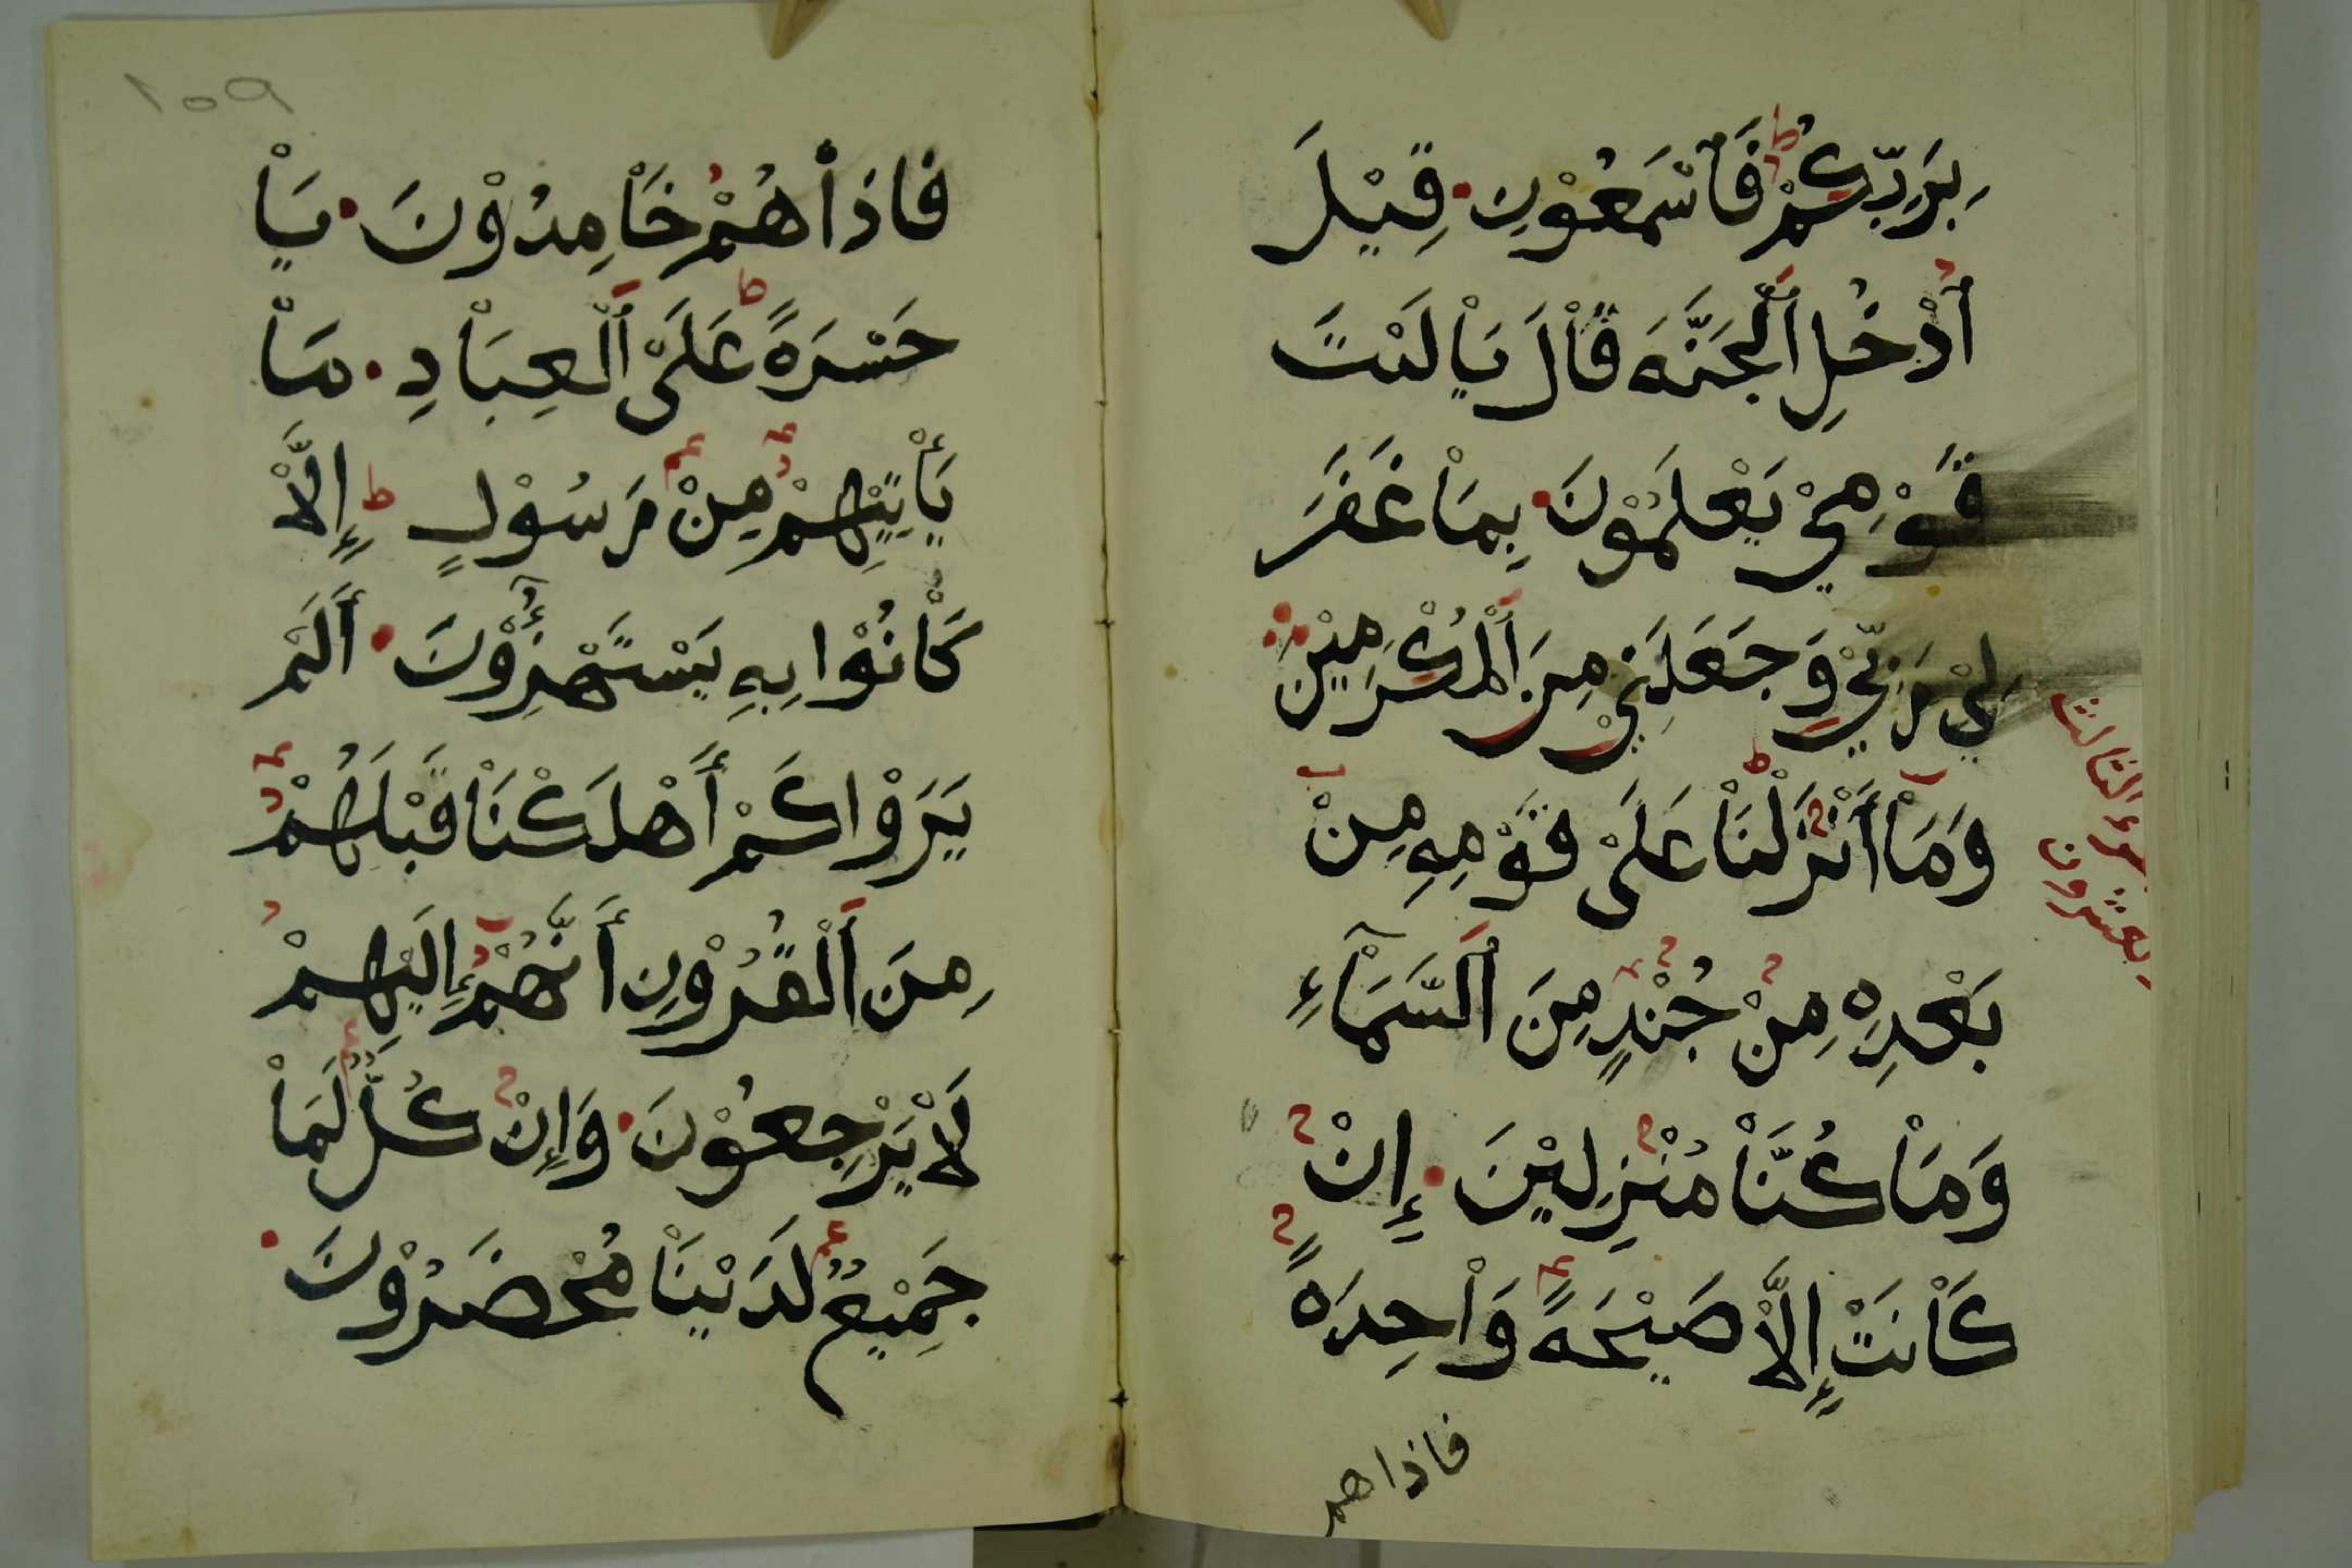 بِرَبِّكُمْ فَاْسْمَعُوْنِ قِيْلَ
أُدْخُلِ اَلْجَنَّهَ قَاْلَ يَاْلَيْتَ
قَوْمِيْ يَعْلَمُوْنَ بِمَاْ غَفَرَ
لِيْ رَبِّيْ وَجَعَلَنِيْ مِنَ اَلْمُكْرَمِيْنَ
الثالث
والعشرون
وَمَاْ أَنْزَلْنَاْ عَلَىْ قَوْمِهِ مِنْ
بَعْدِهِ مِنْ جُنْدٍ مِنَ اَلسَّمَاْءِ
وَمَاْ كُنَّاْ مُنْزِلِيْنَ إِنْ
كَاْنَتْ إِلَّاْ صَيْحَهً وَاْحِدَهً
فاذاهم
١٥٩
فَاذَاْ هُمْ خَاْمِدُوْنَ يَاْ
حَسْرَهً عَلَىْ اَلْعِبَاْدِ مَاْ
يَأْتِيْهِمْ مِنْ رَسُوْلٍ إِلَّاْ
كَاْنُوْا بِهِ يَسْتَهْزِؤُوْنَ أَلَمْ
يَرَوْا كَمْ أَهْلَكْنَاْ قَبْلَهُمْ
مِنَ اَلْقُرُوْنِ أَنَّهُمْ إِلَيْهِمْ
لَاْ يَرْجِعُوْنَ وَإِنْ كُلٌّ لَمَاْ
جَمِيْعٌ لَدَيْنَاْ مُحْضَرُوْنَ